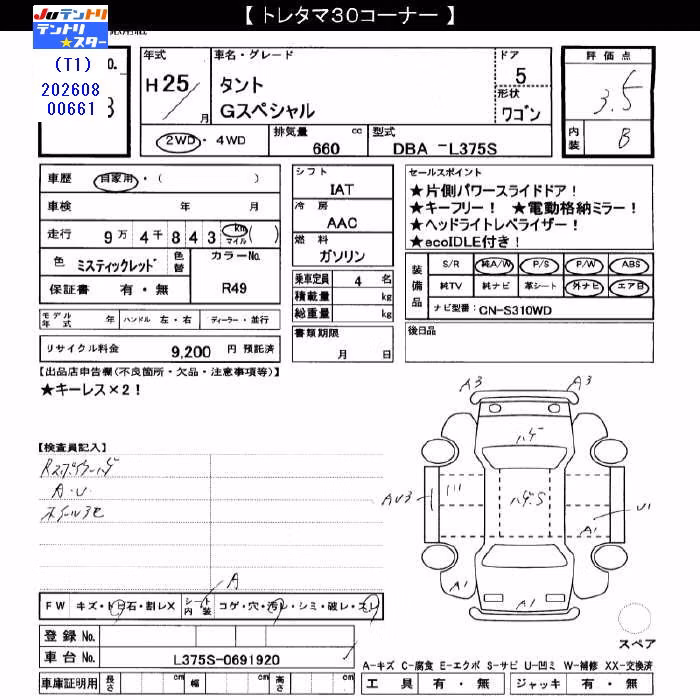 【 トレタマ30コーナー 】
JUテントリ
テントリ
★スター
(T1)
202608
00661
No.
3
年式
H 25 / 月
車名・グレード
タント
Gスペシャル
ドア
5
形状
ワゴン
評価点
3.5
内装
B
2WD・4WD
排気量 cc
660
型式
DBA -L375S
車歴 自家用・( )
車検 年 月
走行 9万 4千 8 4 3 km マイル ( )
色 ミスティックレッド 色替
カラーNo.
R49
保証書 有・無
シフト
IAT
冷房
AAC
燃料
ガソリン
乗車定員 4 名
積載量 kg
総重量 kg
セールスポイント
★片側パワースライドドア!
★キーフリー! ★電動格納ミラー!
★ヘッドライトレベライザー!
★ecoIDLE付き!
装備品
S/R 純A/W P/S P/W ABS
純TV 純ナビ 革シート 外ナビ エア日
ナビ型番: CN-S310WD
モデル年式 年 ハンドル 左・右 ディーラー・並行
書類期限
月 日
後日品
リサイクル料金 9,200 円 預託済
【出品店申告欄(不良箇所・欠品・注意事項等)】
★キーレス×2!
【検査員記入】
A・U
A3
A3
ハゲ
AU3
ハゲ・S
U1
A1
A1
A1
A
FW キズ・トビ石・割レX
シート内装 コゲ・穴・汚レ・シミ・破レ・スレ
登録 No.
車台 No. L375S-0691920
車庫証明用 長さ cm 幅 cm 高さ cm
スペア
A-キズ C-腐食 E-エクボ S-サビ U-凹ミ W-補修 XX-交換済
工具 有・無 ジャッキ 有・無